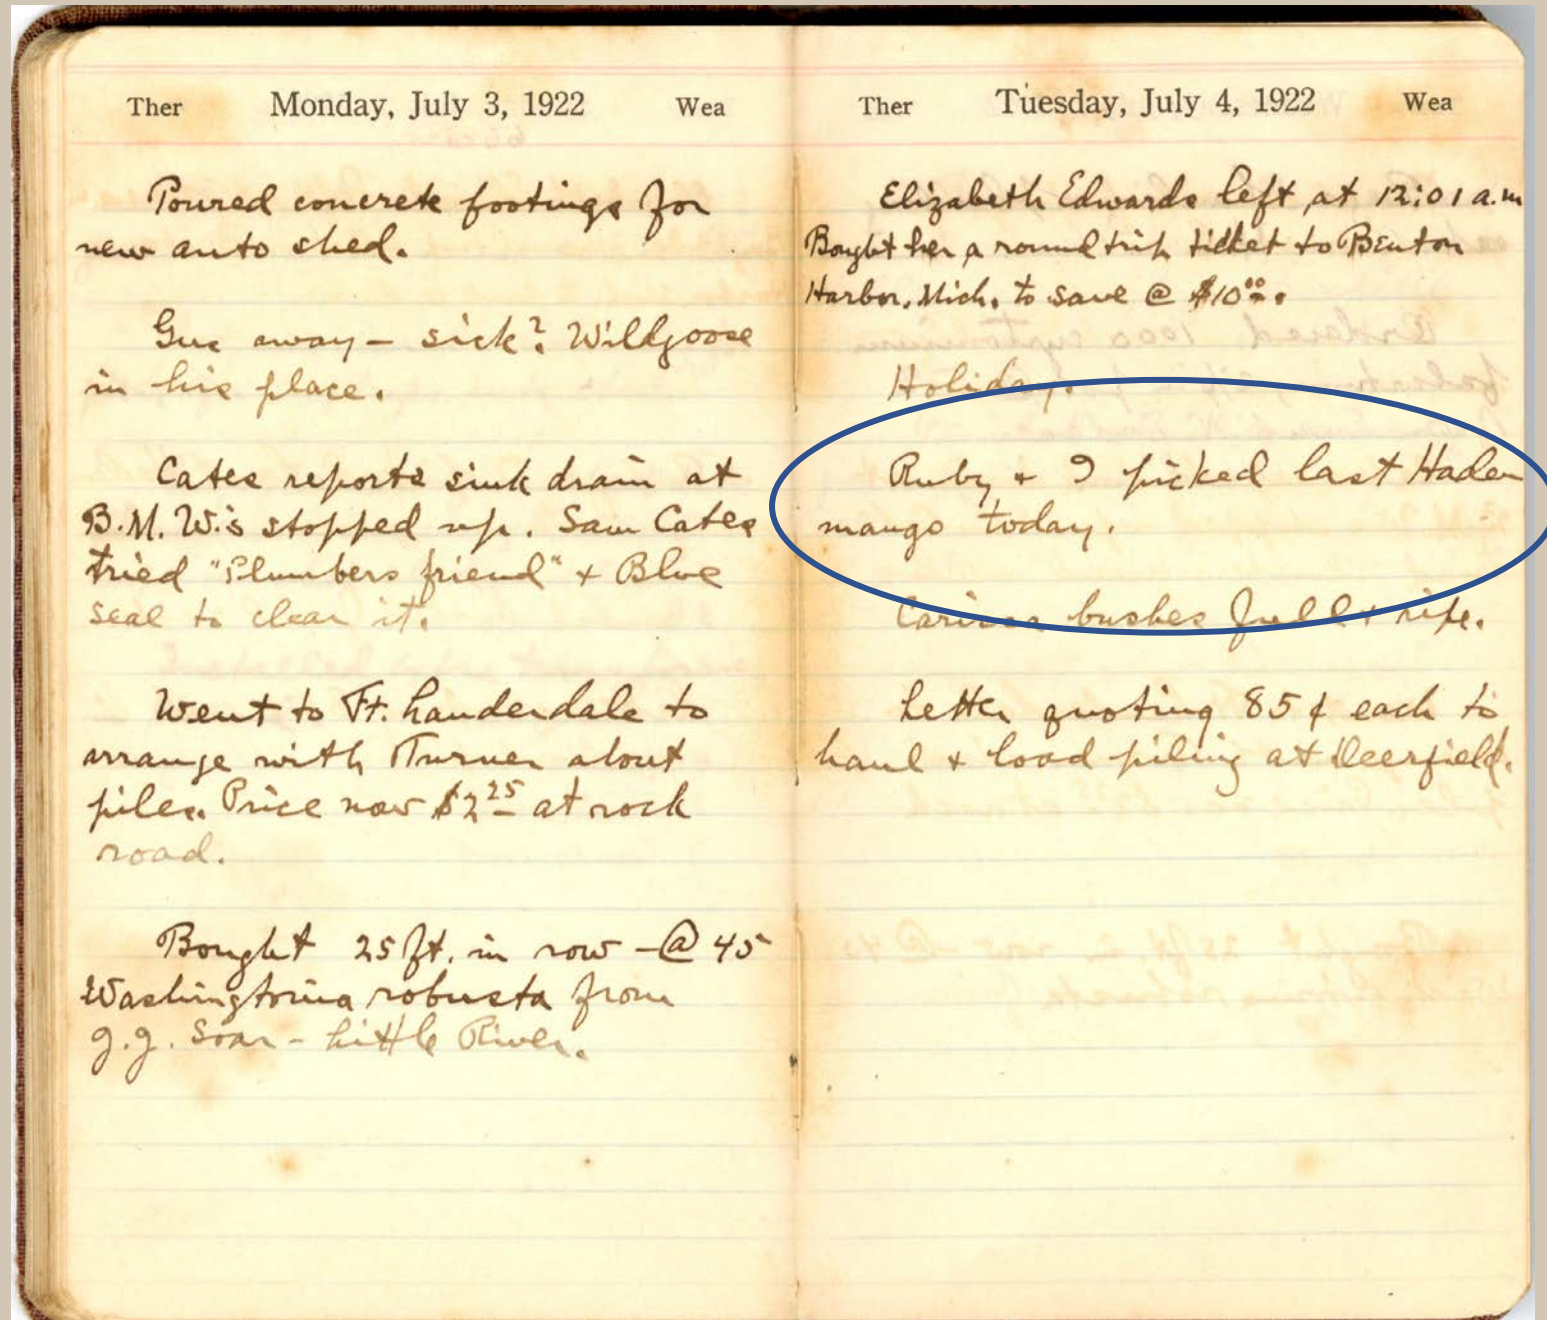 Ther Monday, July 3, 1922 Wea
Poured concrete footings for
new auto shed.
Gus away – sick? Wildgoose
in his place.
Cates reports sink drain at
B.M.W.'s stopped up. Sam Cates
tried "Plumbers friend" + Blue
seal to clear it.
Went to Ft. Lauderdale to
arrange with Turner about
piles. Price now $2 25 at rock
road.
Bought 25 ft. in row – @ 45
Washingtonia robusta from
J.J. Soar – Little River.
Ther Tuesday, July 4, 1922 Wea
Elizabeth Edwards left at 12:01 a.m
Bought her a round trip ticket to Benton
Harbor, Mich. to save @ $10 00.
Holiday.
Ruby + I picked last Haden
mango today.
Carissa bushes full + ripe.
Letter quoting 85¢ each to
haul + load piling at Deerfield.